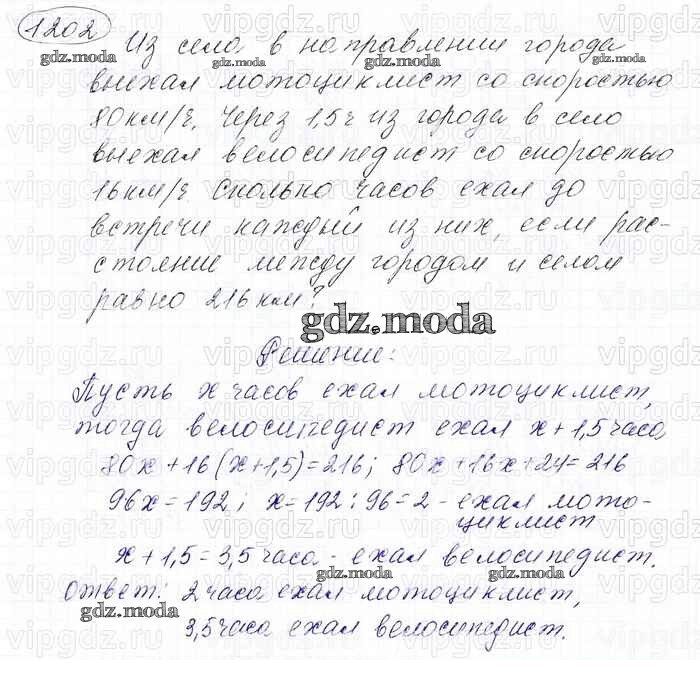 1202 Из села в направлении города
выехал мотоциклист со скоростью
80 км/ч. Через 1,5 ч из города в село
выехал велосипедист со скоростью
16 км/ч. Сколько часов ехал до
встречи каждый из них, если рас-
стояние между городом и селом
равно 216 км?
gdz.moda
Решение:
Пусть x часов ехал мотоциклист,
тогда велосипедист ехал x + 1,5 часа
80x + 16 (x + 1,5) = 216; 80x + 16x + 24 = 216
96x = 192; x = 192 : 96 = 2 - ехал мото-
циклист
x + 1,5 = 3,5 часа - ехал велосипедист.
Ответ: 2 часа ехал мотоциклист,
3,5 часа ехал велосипедист.